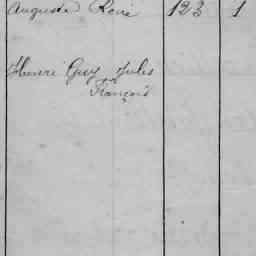 Auguste René 123 1
Henri Guy Jules
François